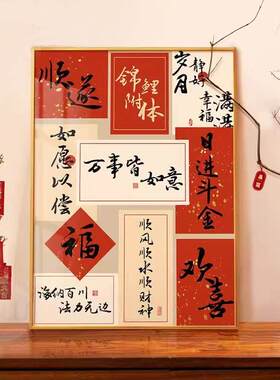 顺遂
锦鲤
附体
岁月
静好
幸福
满满
如愿以偿
万事皆
如意
日进斗金
福
顺风顺水顺财神
欢喜
海纳百川
法力无边